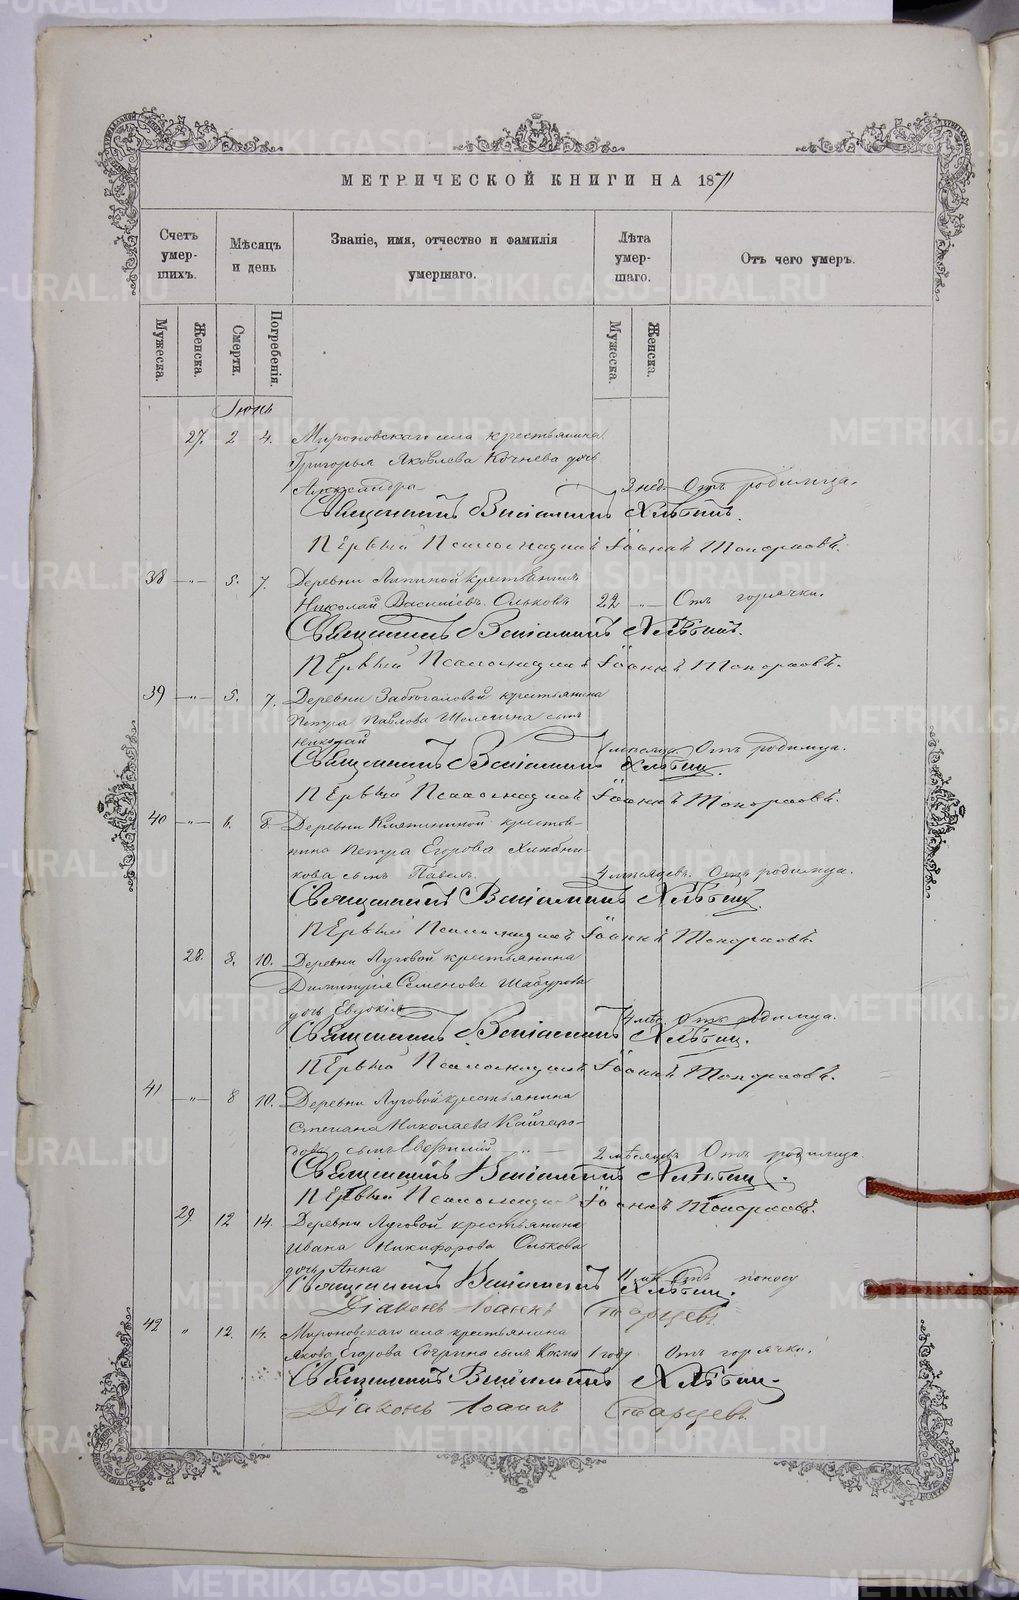 МЕТРИЧЕСКОЙ КНИГИ НА 1871
Счетъ умер-шихъ.
Мѣсяцъ и день
Званіе, имя, отчество и фамилія умершаго.
Лѣта умер-шаго.
Отъ чего умеръ.
Мужеска.
Женска.
Смерти.
Погребенія.
Мужеска.
Женска.
Іюнь
27. 2 4. Мироновскаго села крестьянина
Григорья Яковлева Кочнева дочь
Александра 3 нед. Отъ родимца.
Священникъ Веніаминъ Хлѣбинъ.
Первый Псаломщикъ Іоаннъ Топорковъ.
38 —„— 5. 7. Деревни Липиной крестьянинъ
Николай Васильевъ Ольковъ 22 —„— Отъ горячки.
Священникъ Веніаминъ Хлѣбинъ.
Первый Псаломщикъ Іоаннъ Топорковъ.
39 —„— 5. 7. Деревни крестьянина
Петра Павлова сынъ
Николай Отъ родимца.
Священникъ Веніаминъ Хлѣбин.
Первый Псаломщикъ Іоаннъ Топорковъ.
40 —„— 6. 8. Деревни крестья-
нина Петра Егорова
кова сынъ Павелъ 4 месяцевъ. Отъ родимца.
Священникъ Веніаминъ Хлѣбин.
Первый Псаломщикъ Іоаннъ Топорковъ.
28. 8. 10. Деревни Луговой крестьянина
Димитрія Семенова Шабурова
дочь Евдокія 4 мѣс. Отъ родимца.
Священникъ Веніаминъ Хлѣбин.
Первый Псаломщикъ Іоаннъ Топорковъ.
41 —„— 8 10. Деревни Луговой крестьянина
Степана Николаева Кайгоро-
дова сынъ 2 мѣсяцъ Отъ родимца.
Священникъ Веніаминъ Хлѣбин.
Первый Псаломщикъ Іоаннъ Топорковъ.
29. 12 14. Деревни Луговой крестьянина
Ивана Никифорова Олькова
дочь Анна Отъ поносу
Священникъ Веніаминъ Хлѣбин.
Діаконъ Іоаннъ Старцевъ.
42 „ 12. 14. Мироновскаго села крестьянина
Якова Егорова сынъ Косма 1 году Отъ горячки.
Священникъ Веніаминъ Хлѣбин.
Діаконъ Іоаннъ Старцевъ.
METRIKI.GASO-URAL.RU